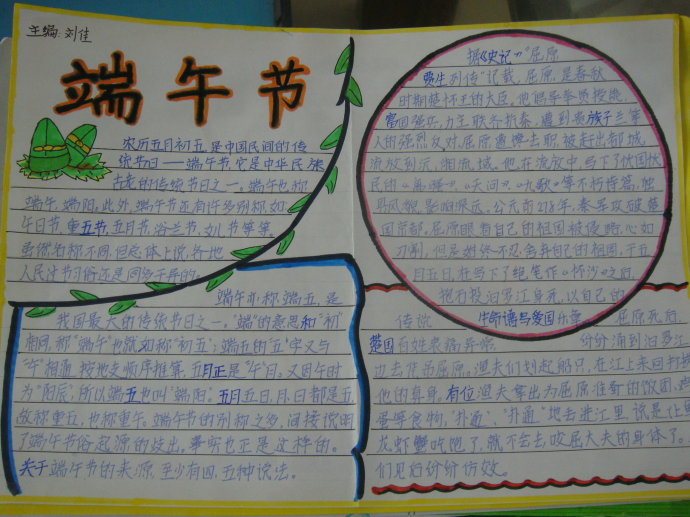 主编：刘佳
端午节
农历五月初五，是中国民间的传
统节日——端午节，它是中华民族
古老的传统节日之一。端午也称
端午，端阳。此外，端午节还有许多别称，如：
午日节、重五节，五月节、浴兰节、女儿节等等。
虽然名称不同，但总体上说，各地
人民过节习俗还是同多于异的。
端午亦称端五，是
我国最大的传统节日之一，"端"的意思和"初"
相同，称"端午"也就如称"初五"；端五的"五"字又与
"午"相通，按地支顺序推算，五月正是"午"月，又因午时
为"阳辰"，所以端五也叫"端阳"。五月五日，月、日都是五，
故称重五，也称重午。端午节的别称之多，间接说明
了端午节俗起源的歧出。事实也正是这样的。
关于端午节的来源，至少有四、五种说法。
据《史记》"屈原
贾生列传"记载，屈原，是春秋
时期楚怀王的大臣。他倡导举贤授能，
富国强兵，力主联齐抗秦，遭到贵族子兰等
人的强烈反对，屈原遭馋去职，被赶出都城，
流放到沅、湘流域。他在流放中，写下了忧国忧
民的《离骚》、《天问》、《九歌》等不朽诗篇，独
具风貌，影响深远。公元前278年，秦军攻破楚
国京都。屈原眼看自己的祖国被侵略，心如
刀割，但是始终不忍舍弃自己的祖国，于五
月五日，在写下了绝笔作《怀沙》之后，
抱石投汨罗江身死，以自己的
生命谱写爱国乐章。
传说 屈原死后，
楚国百姓哀痛异常 纷纷涌到汨罗江
边去凭吊屈原。渔夫们划起船只，在江上来回打捞
他的真身。有位渔夫拿出为屈原准备的饭团、鸡
蛋等食物，"扑通、扑通"地丢进江里，说是让鱼
龙虾蟹吃饱了，就不会去咬屈大夫的身体了。人
们见后纷纷仿效。